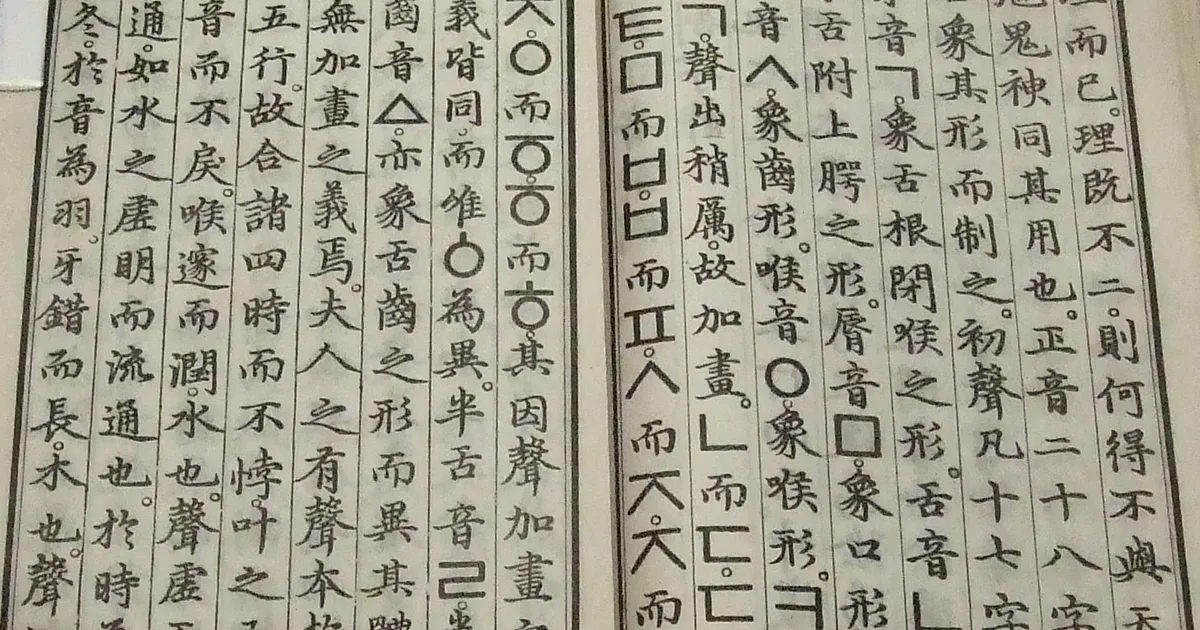 而已。理既不二。則何得不與
鬼神同其用也。正音二十八字
象其形而制之。初聲凡十七字
音ㄱ。象舌根閉喉之形。舌音ㄴ
舌附上腭之形。脣音ㅁ。象口形
音ㅅ。象齒形。喉音ㅇ。象喉形。ㅋ
ㄱ。聲出稍厲。故加畫。ㄴ而ㄷ。ㄷ
ㅌ。ㅁ而ㅂ。ㅂ而ㅍ。ㅅ而ㅈ。ㅈ而
ㅊ。ㅇ而ㆆ。ㆆ而ㅎ。其因聲加畫
義皆同。而唯ㆁ為異。半舌音ㄹ。半
齒音ㅿ。亦象舌齒之形而異其體
無加畫之義焉。夫人之有聲本於
五行。故合諸四時而不悖。叶之
音而不戾。喉邃而潤。水也。聲虛
通。如水之虛明而流通也。於時
冬。於音為羽。牙錯而長。木也。聲